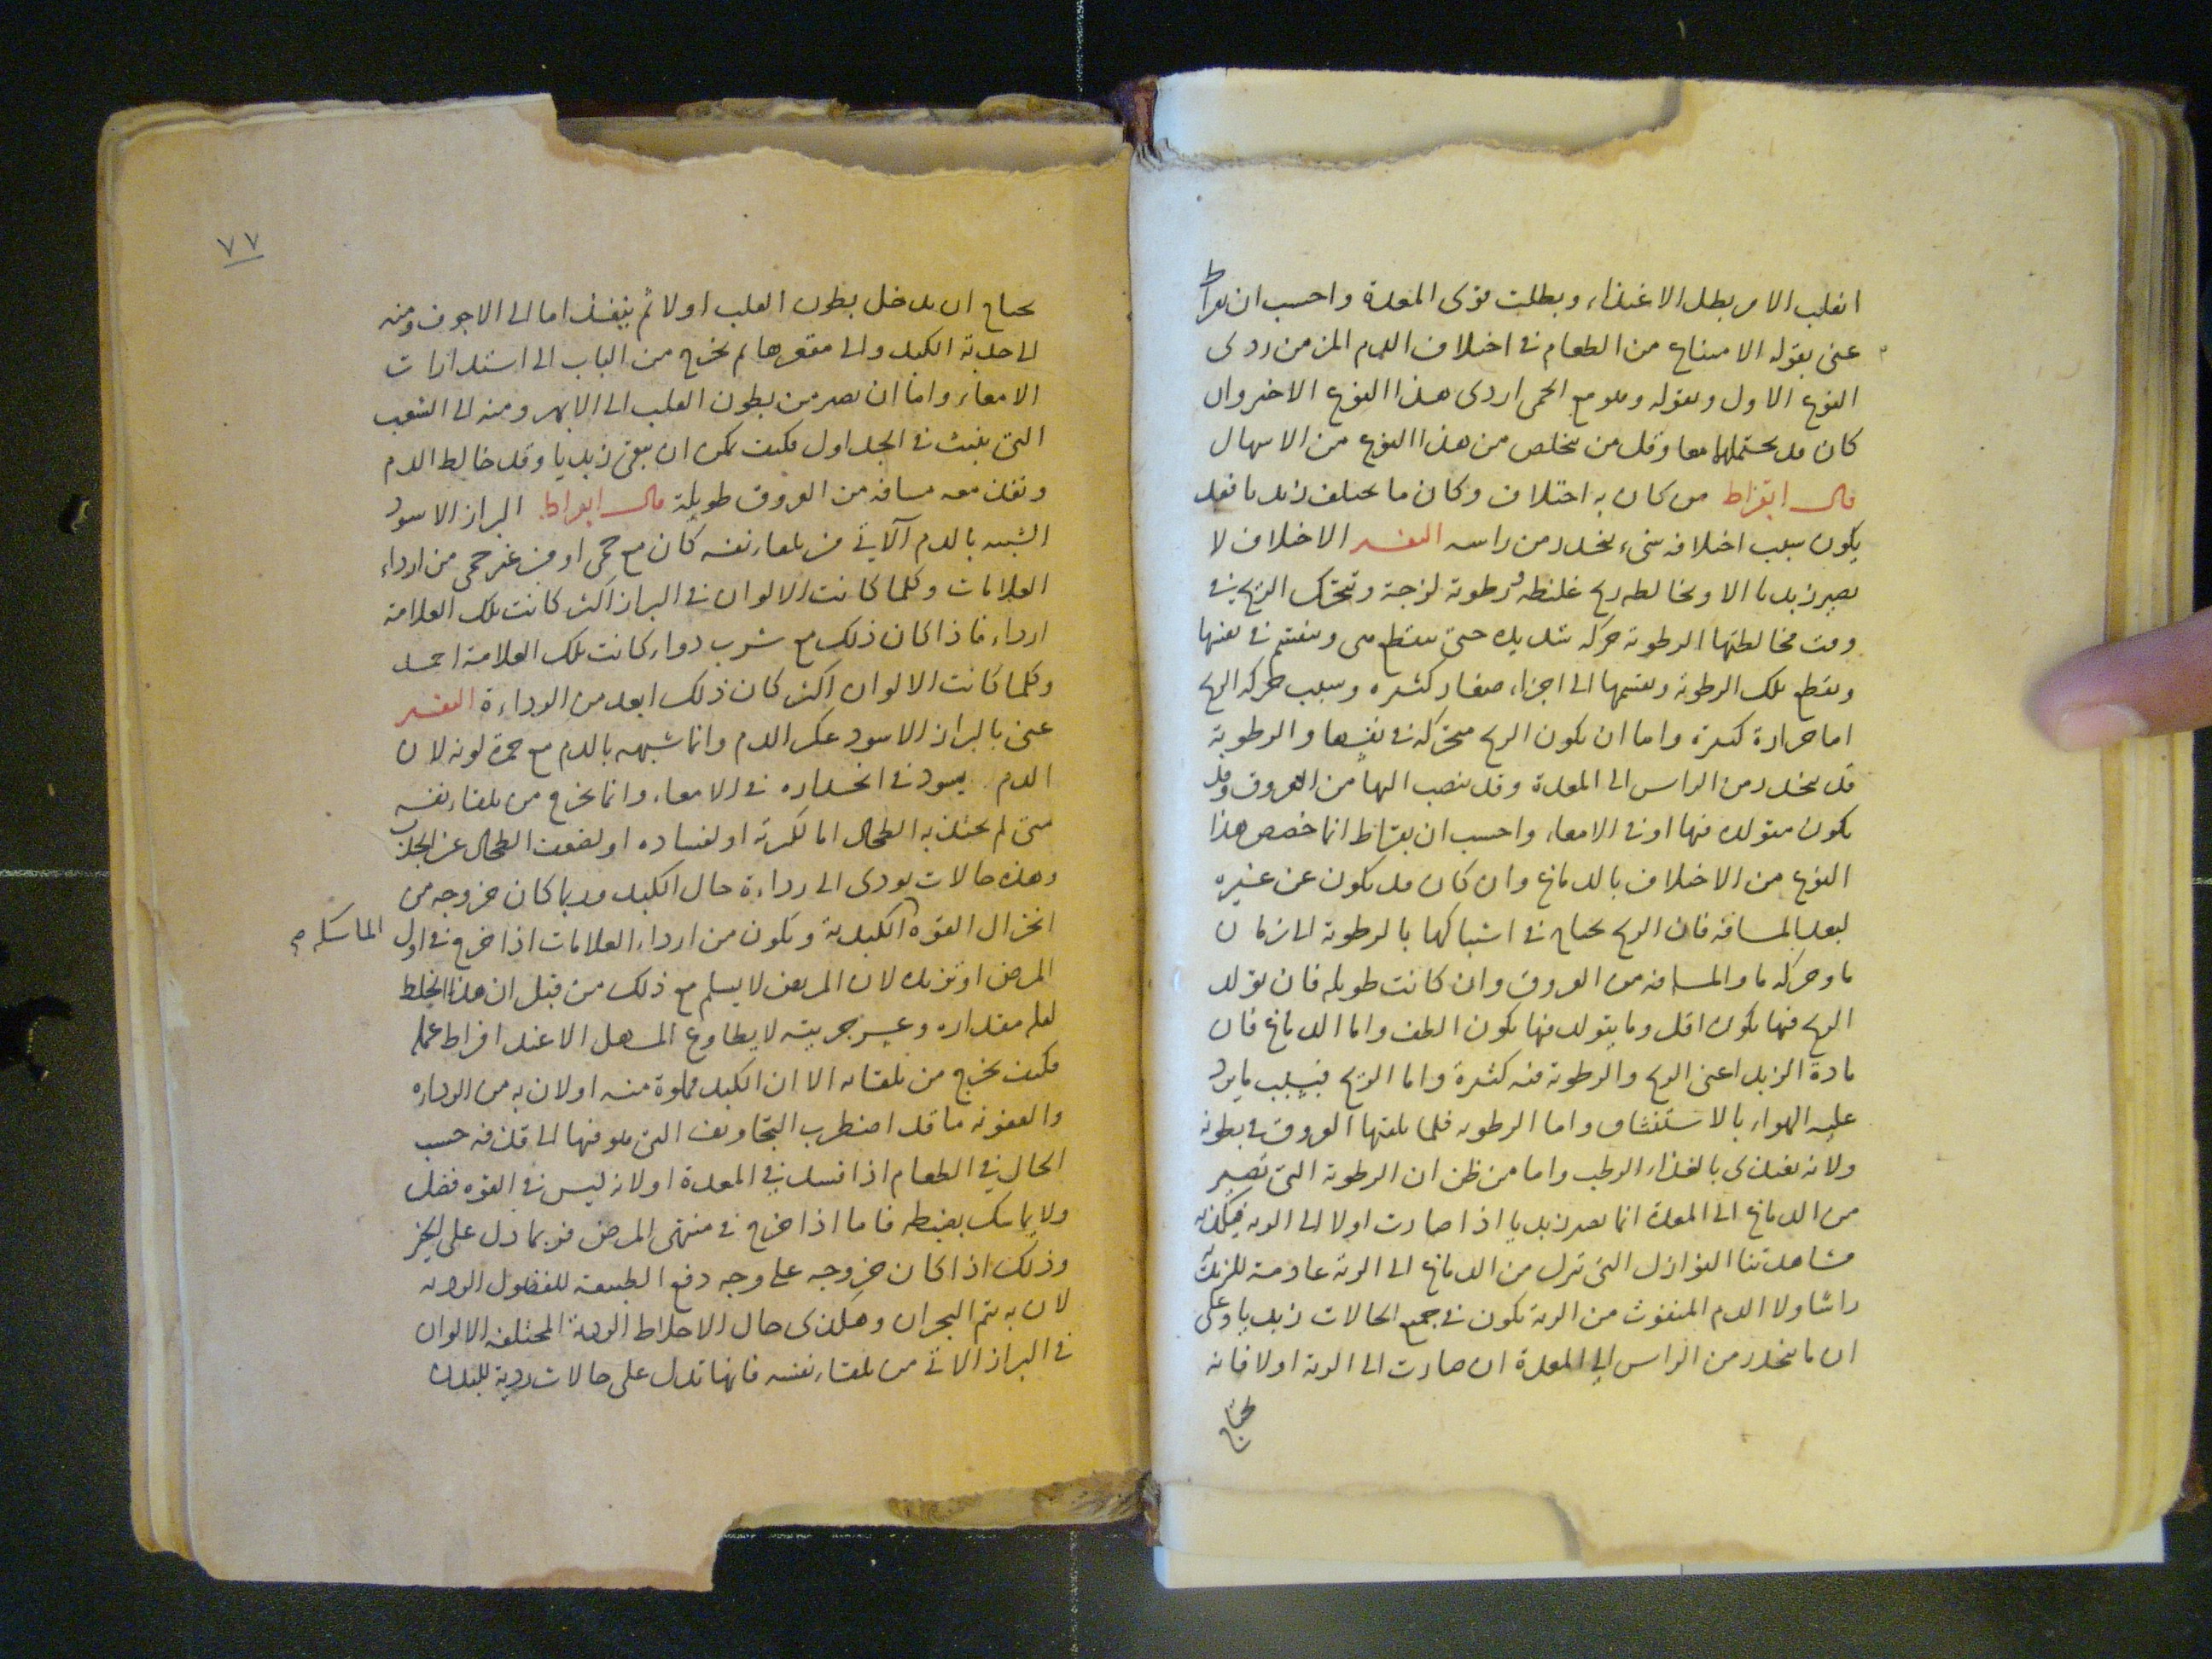 انقلب الامر بطل الاغتذاء وبطلت قوى المعدة واحسب ان بقراط
عنى بقوله الامتناع من الطعام في اختلاف الدم المزمن ردى
النوع الاول وبقوله وهو مع الحمى اردى هذا النوع الاخير وان
كان قد يحتملهما معا وقل من يتخلص من هذا النوع من الاسهال
قال ابقراط من كان به اختلاف وكان ما يختلف زبديا فقد
يكون سبب اختلافه شيء ينحدر من راسه التفسير الاختلاف لا
يصير زبديا الا ويخالطه ريح غليظة ورطوبة لزجة وتتحرك الريح في
وقت مخالطتها الرطوبة حركة شديدة حتى تنقطع هي وتنقسم في نفسها
وتقطع تلك الرطوبة وتقسمها الى اجزاء صغار كثيرة وسبب حركة الريح
اما حرارة كثيرة واما ان يكون الريح متحركة في نفسها والرطوبة
قد ينحدر من الراس الى المعدة وقد ينصب اليها من العروق وقد
يكون متولدة فيها او في الامعاء واحسب ان بقراط انما خصص هذا
النوع من الاختلاف بالدماغ وان كان قد يكون عن غيره
لبعد المسافة فان الريح يحتاج في اشتباكها بالرطوبة الى زمان
ما وحركة ما والمسافة من العروق وان كانت طويلة فان تولد
الريح فيها يكون اقل وما يتولد فيها يكون الطف واما الدماغ فان
مادة الزبد اعنى الريح والرطوبة فيه كثيرة واما الريح فبسبب ما يرد
عليه الهواء بالاستنشاق واما الرطوبة فلما تلقيها العروق في بطونه
ولانه يغتذى بالغذاء الرطب واما من ظن ان الرطوبة التى تصير
من الدماغ الى المعدة انما يصير زبديا اذا صارت اولا الى الرية فيكذبه
مشاهدتنا النوازل التى تنزل من الدماغ الى الرية عادمة للزبدية
دائما ولا الدم المنفوث من الرية يكون في جميع الحالات زبديا وعلى
ان ما ينحدر من الراس الى المعدة ان صارت الى الرية اولا فانه
يحتاج
٧٧
يحتاج ان يدخل بطون القلب اولا ثم ينفذ اما الى الاجوف ومنه
الى حدبة الكبد والى مقعرها ثم يخرج من الباب الى استدارات
الامعاء واما ان يصير من بطون القلب الى الابهر ومنه الى الشعب
التى ينبث في الجداول فكيف يمكن ان يبقى زبديا وقد خالط الدم
ونفذ معه مسافة من العروق طويلة قال ابقراط البراز الاسود
الشبيه بالدم الآتي من تلقاء نفسه كان مع حمى او من غير حمى من اردا
العلامات وكلما كانت الالوان في البراز اكثر كانت تلك العلامة
اردا فاذا كان ذلك مع شرب دواء كانت تلك العلامة احمد
وكلما كانت الالوان اكثر كان ذلك ابعد من الرداءة التفسير
عنى بالبراز الاسود عكر الدم وانما شبهه بالدم مع حمرة لونه لان
الدم يسود في انحداره في الامعاء وانما يخرج من تلقاء نفسه
متى لم يجتذبه الطحال اما لكثرته او لفساده او لضعف الطحال عن الجذب
وهذه حالات يودى الى رداءة حال الكبد وربما كان خروجه من
انخزال القوة الكبدية ويكون من اردا العلامات اذا خرج في اول
الماسكة صح
المرض او تزيده لان المريض لا يسلم مع ذلك من قبل ان هذا الخلط
لقلة مقداره وعسر جريته لا يطاوع المسهل الا عند افراط عمله
فكيف يخرج من تلقائه الا ان الكبد مملوة منه او لان به من الرداءة
والعفونة ما قد اضطرب التجاويف التى هو فيها الى قذفه حسب
الحال في الطعام اذا فسد في المعدة او لانه ليس في القوة فضل
ولا تماسك بضبطه فاما اذا خرج في منتهى المرض فربما دل على الخير
وذلك اذا كان خروجه على وجه دفع الطبيعة للفضول الردية
لان به يتم البحران وهكذى حال الاخلاط الردية المختلفة الالوان
في البراز الاتي من تلقاء نفسه فانها تدل على حالات ردية للبدن